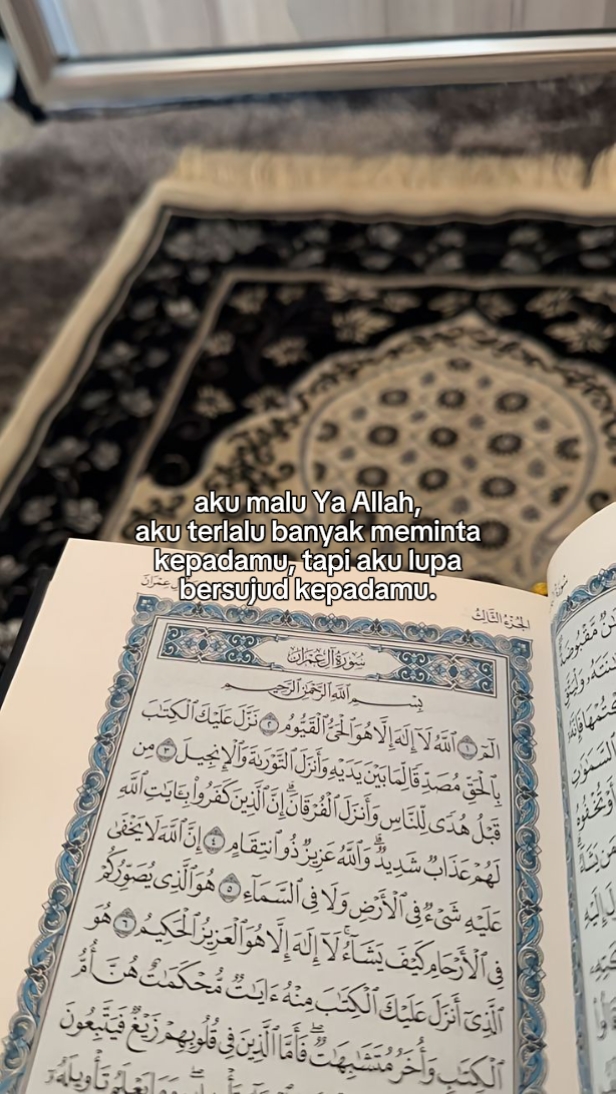 aku malu Ya Allah,
aku terlalu banyak meminta
kepadamu, tapi aku lupa
bersujud kepadamu.
الجزء الثالث
سُورَةُ آلِ عِمْرَانَ
بِسْمِ اللَّهِ الرَّحْمَٰنِ الرَّحِيمِ
الٓمٓ ١ ٱللَّهُ لَآ إِلَٰهَ إِلَّا هُوَ ٱلْحَىُّ ٱلْقَيُّومُ ٢ نَزَّلَ عَلَيْكَ ٱلْكِتَٰبَ
بِٱلْحَقِّ مُصَدِّقًا لِّمَا بَيْنَ يَدَيْهِ وَأَنزَلَ ٱلتَّوْرَىٰةَ وَٱلْإِنجِيلَ ٣ مِن
قَبْلُ هُدًى لِّلنَّاسِ وَأَنزَلَ ٱلْفُرْقَانَ ۗ إِنَّ ٱلَّذِينَ كَفَرُوا۟ بِـَٔايَٰتِ ٱللَّهِ
لَهُمْ عَذَابٌ شَدِيدٌ ۗ وَٱللَّهُ عَزِيزٌ ذُو ٱنتِقَامٍ ٤ إِنَّ ٱللَّهَ لَا يَخْفَىٰ
عَلَيْهِ شَىْءٌ فِى ٱلْأَرْضِ وَلَا فِى ٱلسَّمَآءِ ٥ هُوَ ٱلَّذِى يُصَوِّرُكُمْ
فِى ٱلْأَرْحَامِ كَيْفَ يَشَآءُ ۚ لَآ إِلَٰهَ إِلَّا هُوَ ٱلْعَزِيزُ ٱلْحَكِيمُ ٦ هُوَ
ٱلَّذِىٓ أَنزَلَ عَلَيْكَ ٱلْكِتَٰبَ مِنْهُ ءَايَٰتٌ مُّحْكَمَٰتٌ هُنَّ أُمُّ
ٱلْكِتَٰبِ وَأُخَرُ مُتَشَٰبِهَٰتٌ ۖ فَأَمَّا ٱلَّذِينَ فِى قُلُوبِهِمْ زَيْغٌ فَيَتَّبِعُونَ